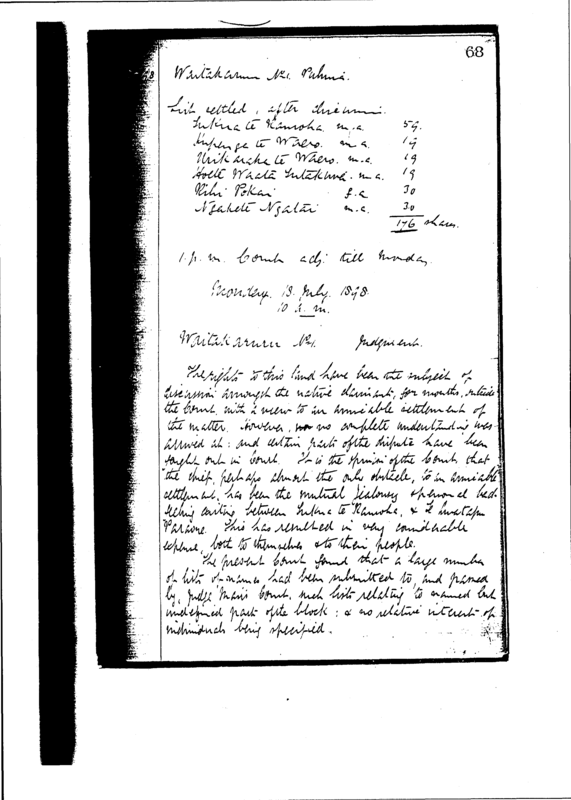 68
Waitakaruru No1.
List settled, after
Tukua te Kamoha. m.a. 59.
te Waero. m.a. 19
te Waero. m.a. 19
Hoete Waata m.a. 19
Pokai f.a 30
Ngakete Ngatai m.a. 30
176 shares.
1. p.m. Court adj. till Monday
Monday. 18. July. 1898.
10 a.m.
Waitakaruru No1. Judgment.
The rights to this land have been the subject of
discussion amongst the native claimants, for months, outside
the Court, with a view to an amicable settlement of
the matter. However, no complete understanding was
arrived at: and certain parts of the dispute have been
fought out in Court. It is the opinion of the Court that
the chief, perhaps almost the only obstacle, to an amicable
settlement, has been the mutual jealousy & personal bad
feeling existing between te Kamoha, &
Paraone. This has resulted in very considerable
expense, both to themselves & to their people.
The present Court found that a large number
of lists of names had been submitted to, and passed
by, Judge Mair's Court, such lists relating to named but
undefined parts of the block: & no relative interest of
individuals being specified.